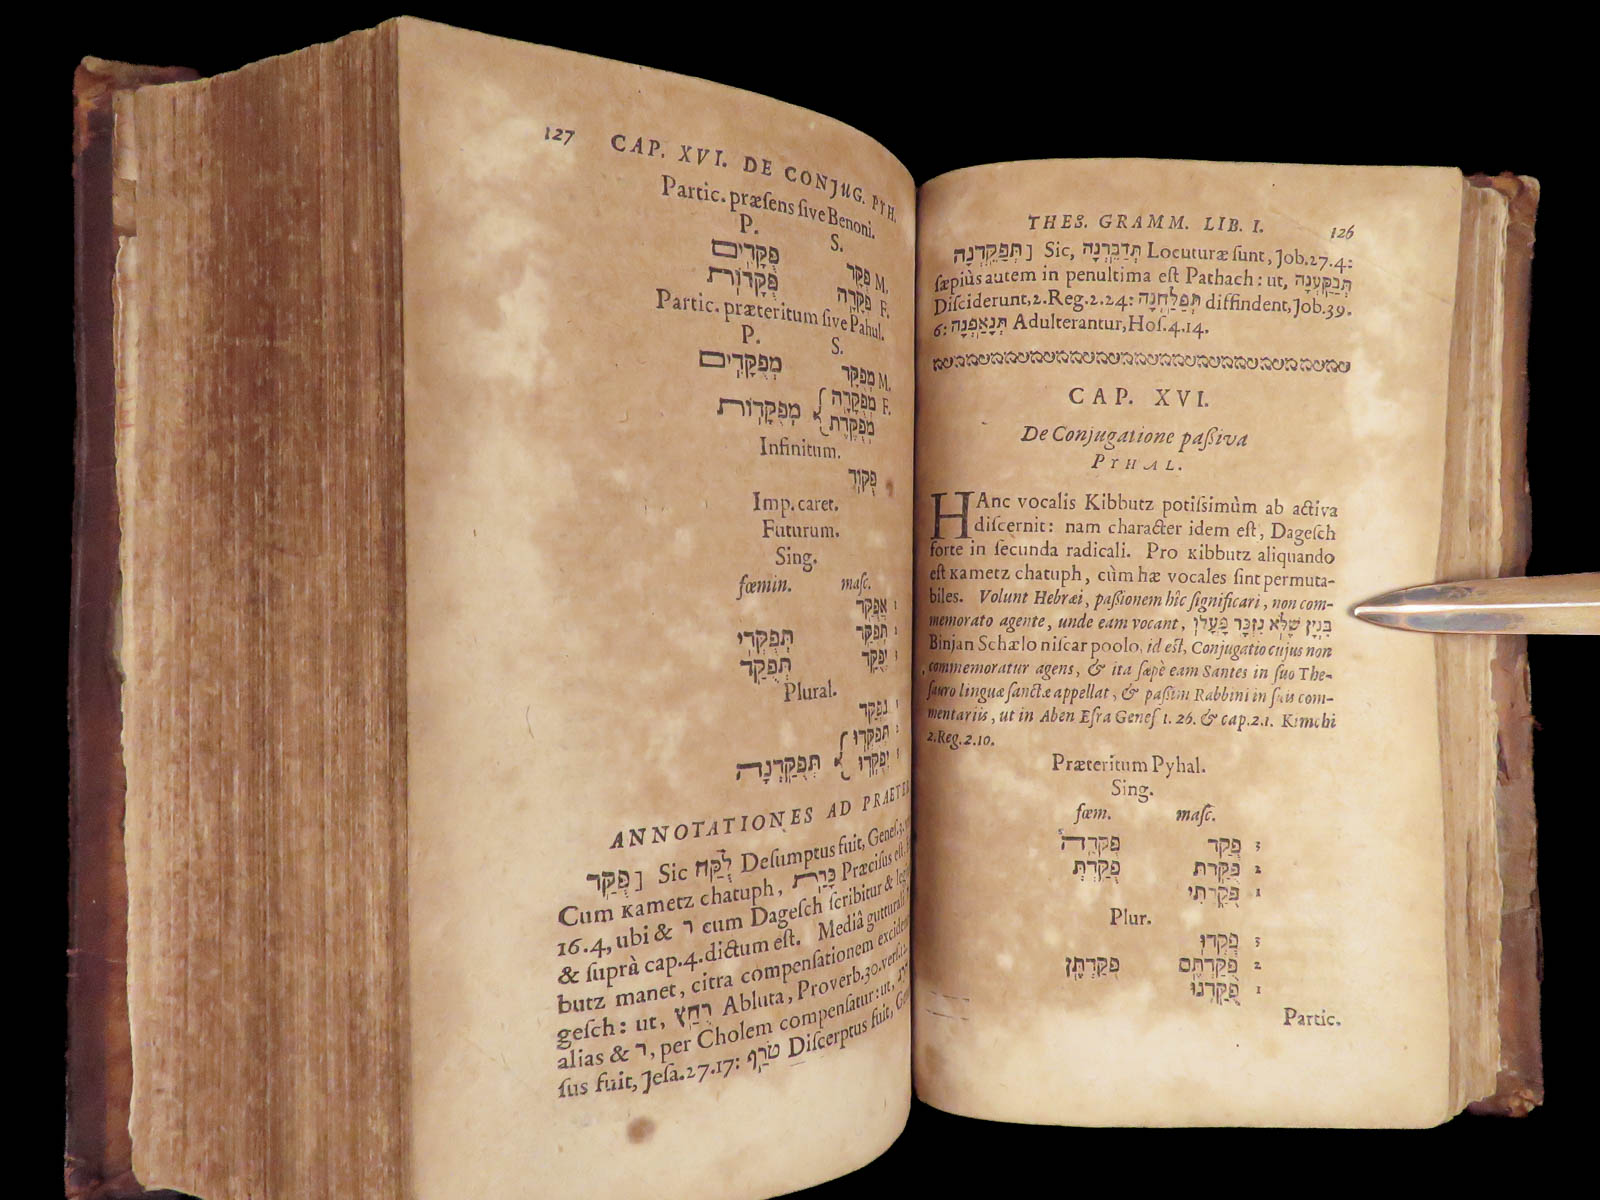 THES. GRAMM. LIB. I. 126
תְּפַקֵּדְנָה] Sic, תְּדַבֵּרְנָה Locuturæ ſunt, Job.27.4:
ſæpiùs autem in penultima eſt Pathach: ut, תְּבַקַּעְנָה
Diſciderunt, 2. Reg. 2.24: תְּפַלַּחְנָה diffindent, Job. 39.
6: תְּנָאַפְנָה Adulterantur, Hoſ. 4.14.
CAP. XVI.
De Conjugatione paſſiva
PYHAL.
HAnc vocalis Kibbutz potiſſimùm ab activa
diſcernit: nam character idem eſt, Dageſch
forte in ſecunda radicali. Pro Kibbutz aliquando
eſt Kametz chatuph, cùm hæ vocales ſint permuta-
biles. Volunt Hebræi, paſſionem hîc ſignificari, non com-
memorato agente, unde eam vocant, בִּנְיָן שֶׁלֹּא נִזְכָּר פָּעֳלוֹ
Binjan Schælo niſcar poolo, id eſt, Conjugatio cujus non
commemoratur agens, & ita ſæpè eam Santes in ſuo The-
ſauro linguæ ſanctæ appellat, & paſſim Rabbini in ſuis com-
mentariis, ut in Aben Eſra Geneſ 1. 26. & cap. 2.1. Kimchi
2. Reg. 2.10.
Præteritum Pyhal.
Sing.
fœm. maſc.
פֻּקְּדָה פֻּקַּד 3
פֻּקַּדְתְּ פֻּקַּדְתָּ 2
פֻּקַּדְתִּי 1
Plur.
פֻּקְּדוּ 3
פֻּקַּדְתֶּן פֻּקַּדְתֶּם 2
פֻּקַּדְנוּ 1
Partic.
127 CAP. XVI. DE CONJUG. PYH.
Partic. præſens ſive Benoni.
P. S.
פֻּקָּדִים פֻּקָּד M.
פֻּקָּדוֹת פֻּקָּדָה F.
Partic. præteritum ſive Pahul.
P. S.
מְפֻקָּדִים מְפֻקָּד M.
מְפֻקָּדוֹת { מְפֻקָּדָה F.
מְפֻקֶּדֶת
Infinitum.
פֻּקּוֹד
Imp. caret.
Futurum.
Sing.
fœmin. maſc.
אֲפֻקַּד 1
תְּפֻקְּדִי תְּפֻקַּד 2
תְּפֻקַּד יְפֻקַּד 3
Plural.
נְפֻקַּד 1
תְּפֻקַּדְנָה { תְּפֻקְּדוּ 2
יְפֻקְּדוּ 3
ANNOTATIONES AD PRAETER
פֻּקַּד] Sic לֻקַּח Deſumptus fuit, Geneſ. 3.
Cum Kametz chatuph, כָּרַּת Præciſus eſt,
16.4, ubi & ר cum Dageſch ſcribitur &
& ſuprà cap. 4. dictum eſt. Mediâ gutturali
butz manet, citra compenſationem
geſch: ut, רֻחַץ Abluta, Proverb. 30. verſ. 12.
alias & ר, per Cholem compenſatur: ut,
sus fuit, Jeſa. 27.17: טֹרַף Diſcerptus fuit,